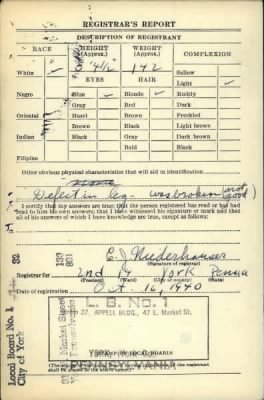 REGISTRAR'S REPORT
DESCRIPTION OF REGISTRANT
RACE HEIGHT (Approx.) WEIGHT (Approx.) COMPLEXION
White 142 Sallow
EYES HAIR Light
Negro Blue Blonde Ruddy
Gray Red Dark
Oriental Hazel Brown Freckled
Brown Black Light brown
Indian Black Gray Dark brown
Bald Black
Filipino
Other obvious physical characteristics that will aid in identification
Defect in leg - was broken (not good)
I certify that my answers are true; that the person registered has read or has had
read to him his own answers; that I have witnessed his signature or mark and that
all of his answers of which I have knowledge are true, except as follows:
E. J. Niederhauser
(Signature of registrar)
Registrar for 2nd 14 York Penna
(Precinct) (Ward) (City or county) (State)
Date of registration Oct. 16, 1940
L. B. No. 1
37, APPELL BLDG., 47 E. Market St.
YORK
PENNSYLVANIA
(STAMP OF LOCAL BOARD)
Local Board No. 1
City of York